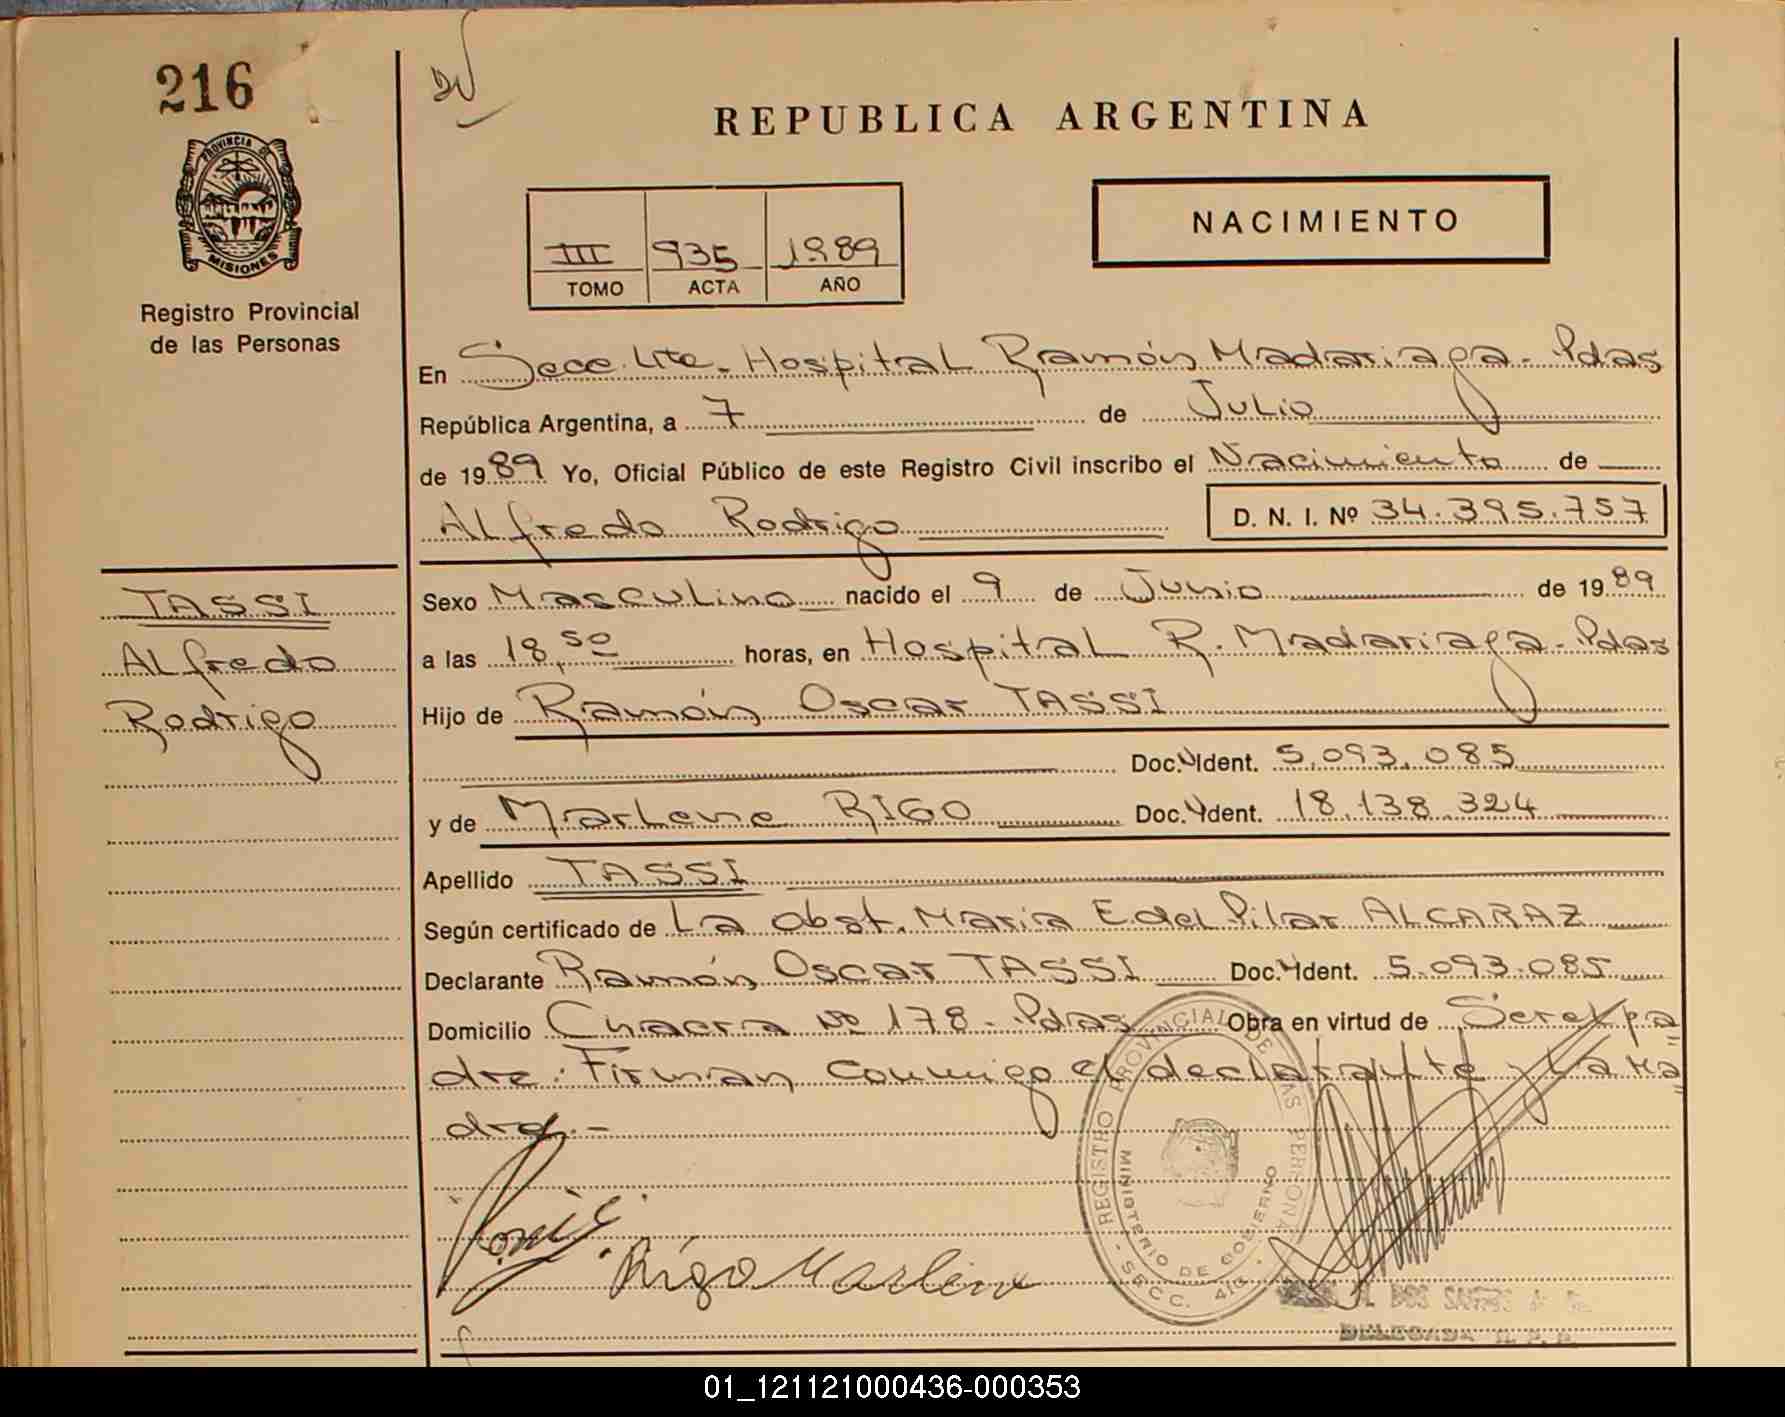 216
PROVINCIA DE
MISIONES
Registro Provincial
de las Personas
REPUBLICA ARGENTINA
NACIMIENTO
III 935 1989
TOMO ACTA AÑO
En Secc. 4te. Hospital Ramón Madariaga - Pdas
República Argentina, a 7 de Julio
de 1989 Yo, Oficial Público de este Registro Civil inscribo el Nacimiento de
Alfredo Rodrigo D. N. I. Nº 34.395.757
TASSI
Alfredo
Rodrigo
Sexo Masculino nacido el 9 de Junio de 1989
a las 18,50 horas, en Hospital R. Madariaga - Pdas
Hijo de Ramón Oscar TASSI
Doc. Ident. 5.093.085
y de Marlene RIGO Doc. Ydent. 18.138.324
Apellido TASSI
Según certificado de La obst. María E. del Pilar ALCARAZ
Declarante Ramón Oscar TASSI Doc. Ident. 5.093.085
Domicilio Chacra Nº 178 - Pdas Obra en virtud de Ser el pa
dre: Firman conmigo el declarante y La Ma
dre.-
Rigo Marlene
REGISTRO PROVINCIAL DE LAS PERSONAS
MINISTERIO DE GOBIERNO
SECC. 4ta
DOS SANTOS
DELEGADA R. P. P.
01_121121000436-000353